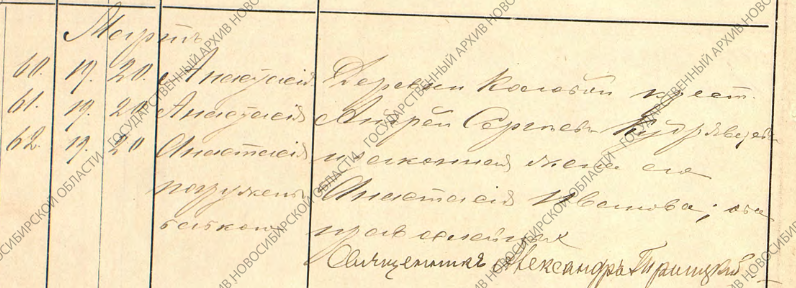 Мартъ
60. 19. 20. Анастасія Деревни крест.
61. 19. 20 Анастасія Андрей Сергѣевъ
62. 19. 20 Анастасія и законная жена его
погружены Анастасія Иванова; оба
православных
Священникъ Александръ Троицкій
ГОСУДАРСТВЕННЫЙ АРХИВ НОВОСИБИРСКОЙ ОБЛАСТИ